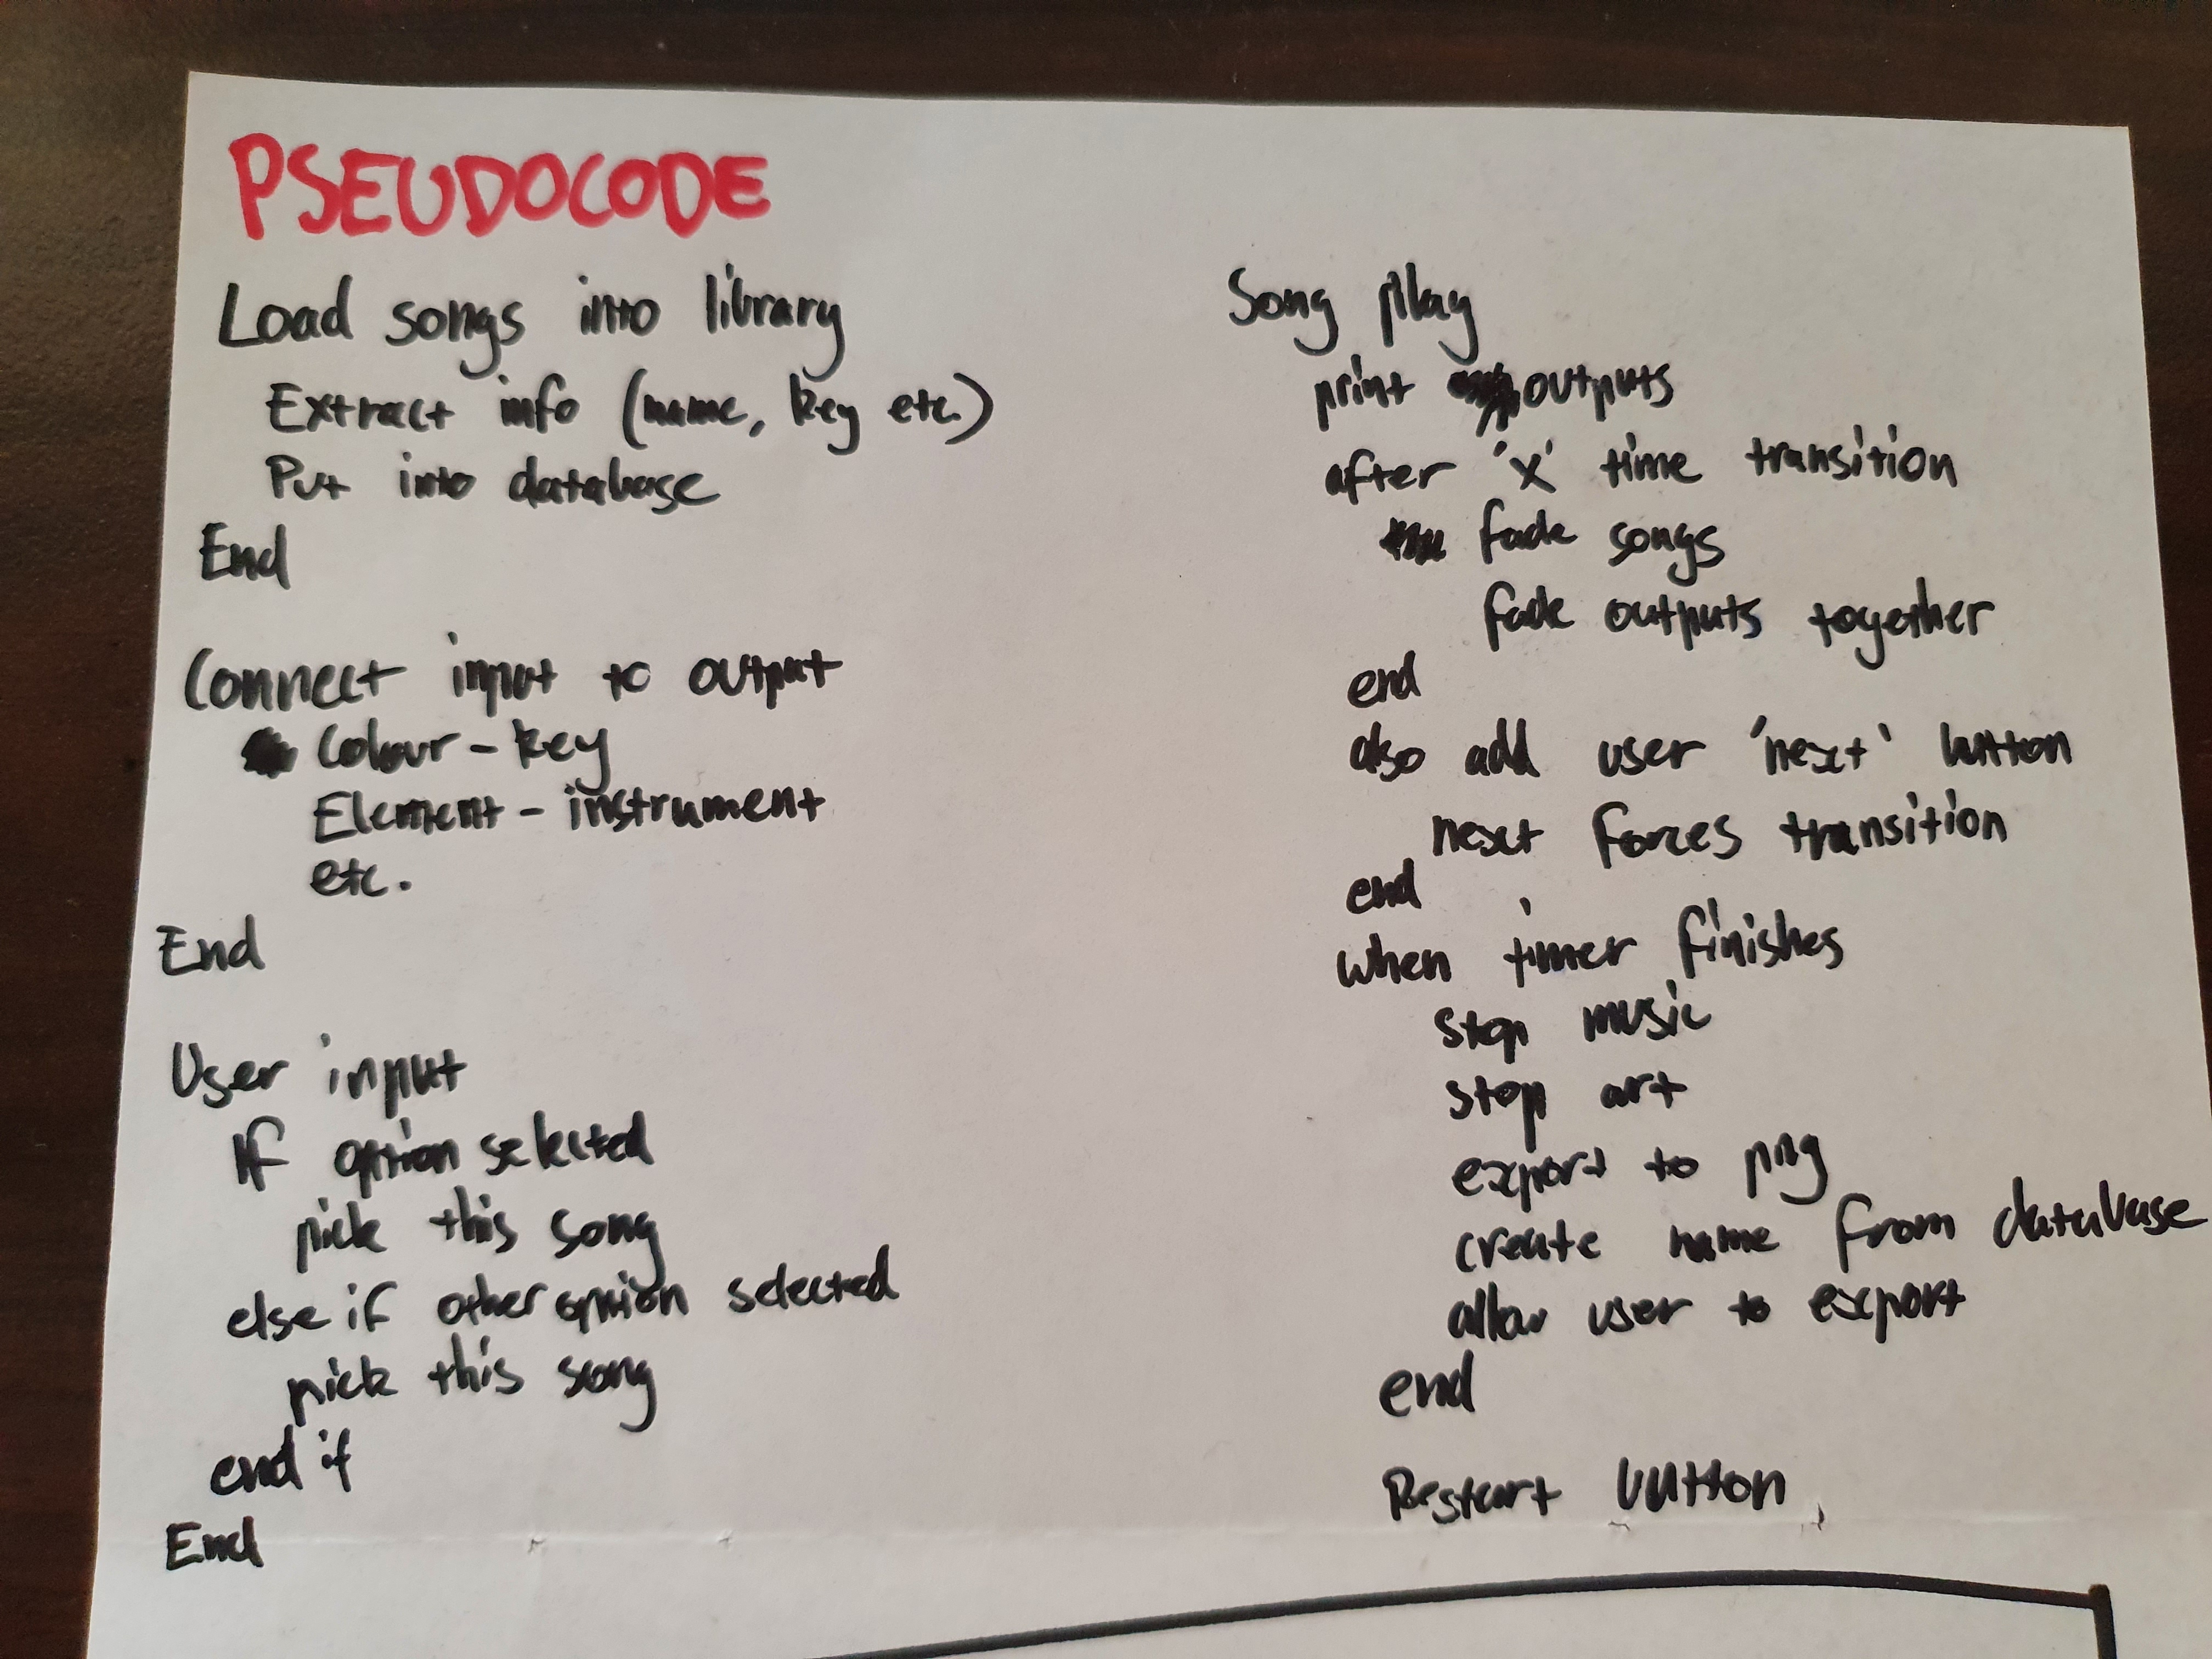 PSEUDOCODE
Load songs into library
Extract info (name, key etc.)
Put into database
End
Connect input to output
Colour - key
Element - instrument
etc.
End
User input
If option selected
pick this song
else if other option selected
pick this song
end if
End
Song play
print outputs
after 'x' time transition
fade songs
fade outputs together
end
also add user 'next' button
next forces transition
end
when timer finishes
stop music
stop art
export to png
create name from database
allow user to export
end
Restart button